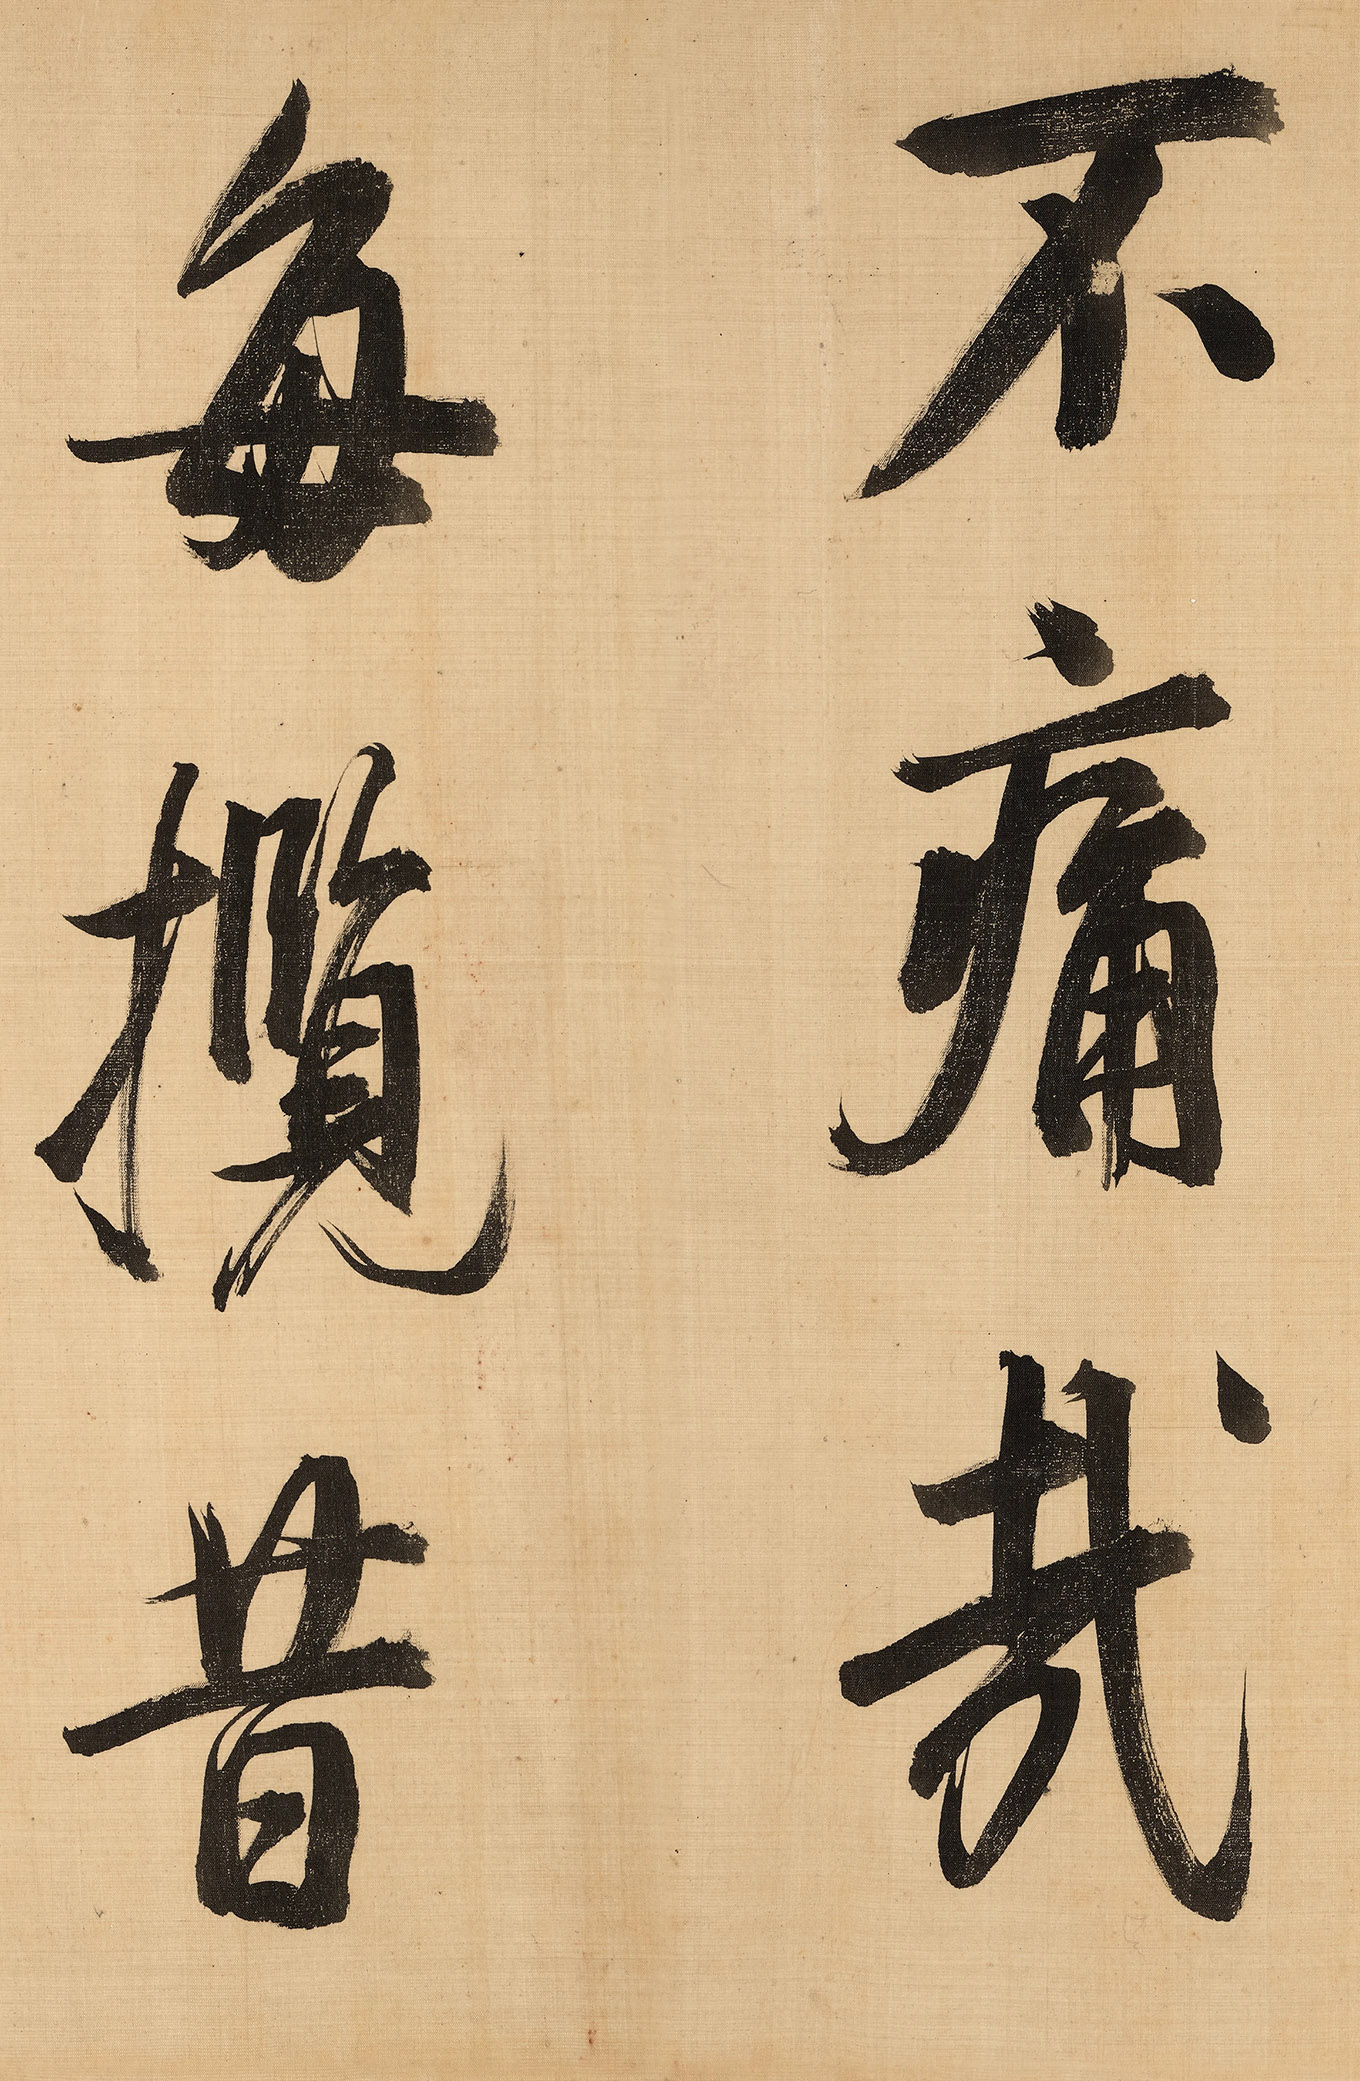 不痛哉
每攬昔